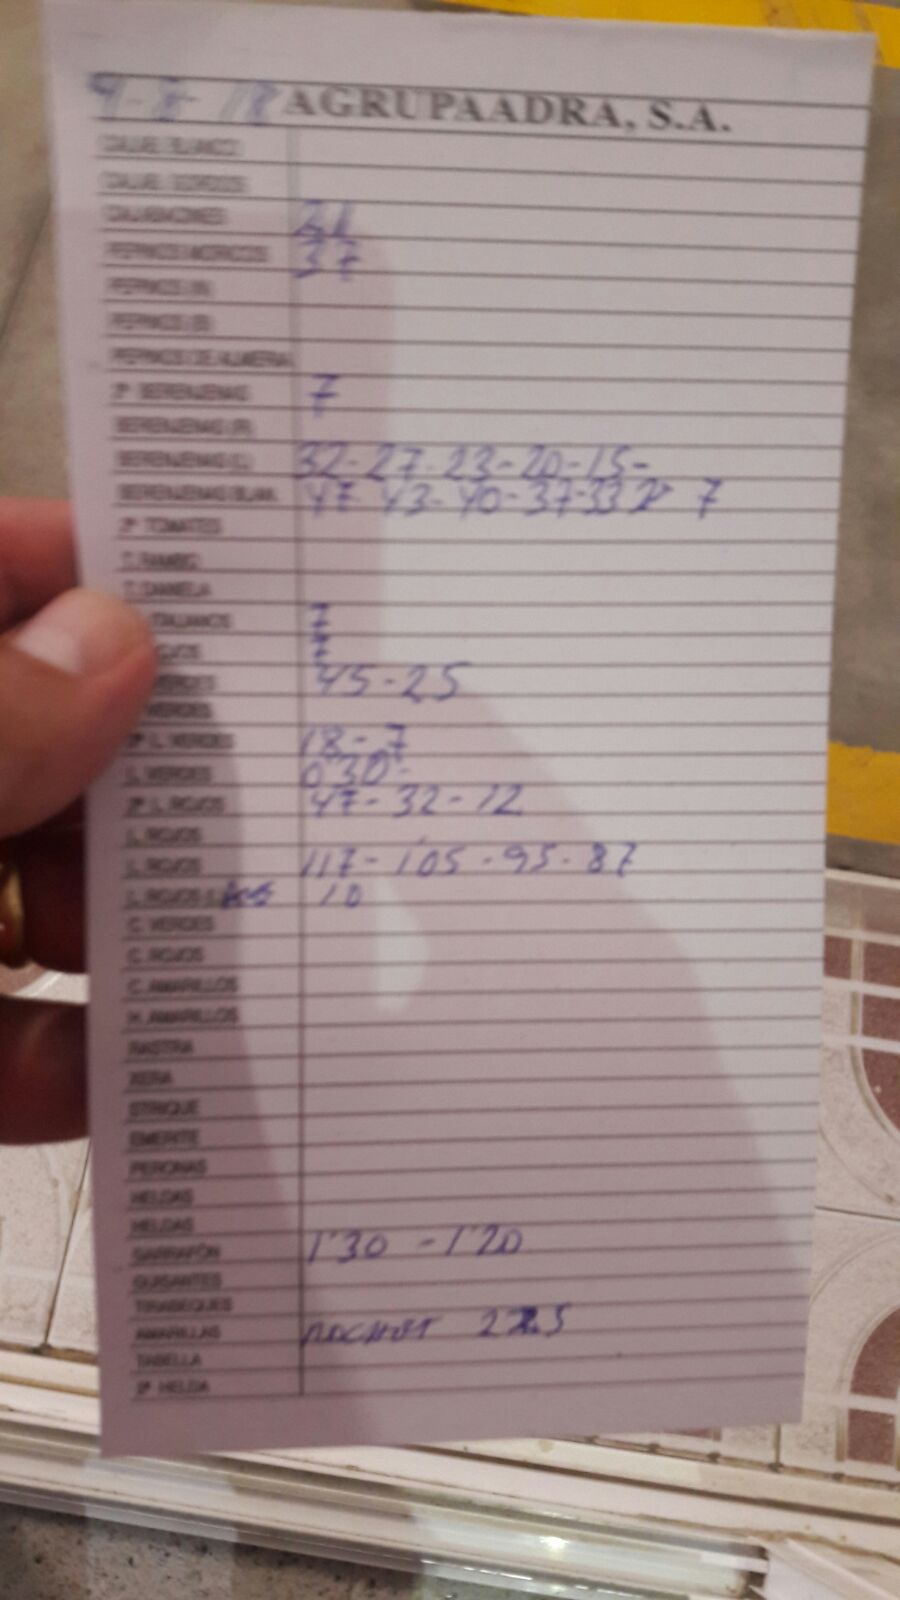 9-8-18 AGRUPAADRA, S.A.
CALAB. BLANCO
CALAB. GORDOS
CALABACINES 21
PEPINOS MORICOS 37
PEPINOS (M)
PEPINOS (B)
PEPINOS DE ALMERIA
2ª BERENJENAS 7
BERENJENAS (R)
BERENJENAS (L) 32-27-23-20-15-
BERENJENAS BLAN. 47-43-40-37-33 2ª 7
2ª TOMATES
T. RAMBO
T. DANIELA
ITALIANOS 7
ROJOS 7
VERDES 45-25
VERDES
2ª L. VERDES 18-7
L. VERDES 0'30-
2ª L. ROJOS 47-32-12
L. ROJOS
L. ROJOS 117-105-95-87
L. ROJOS 10
C. VERDES
C. ROJOS
C. AMARILLOS
H. AMARILLOS
RASTRA
XERA
STRIQUE
EMERITE
PERONAS
HELDAS
HELDAS
GARRAFÓN 1'30 -1'20
GUISANTES
TIRABEQUES
AMARILLAS
TABELLA
2ª HELDA